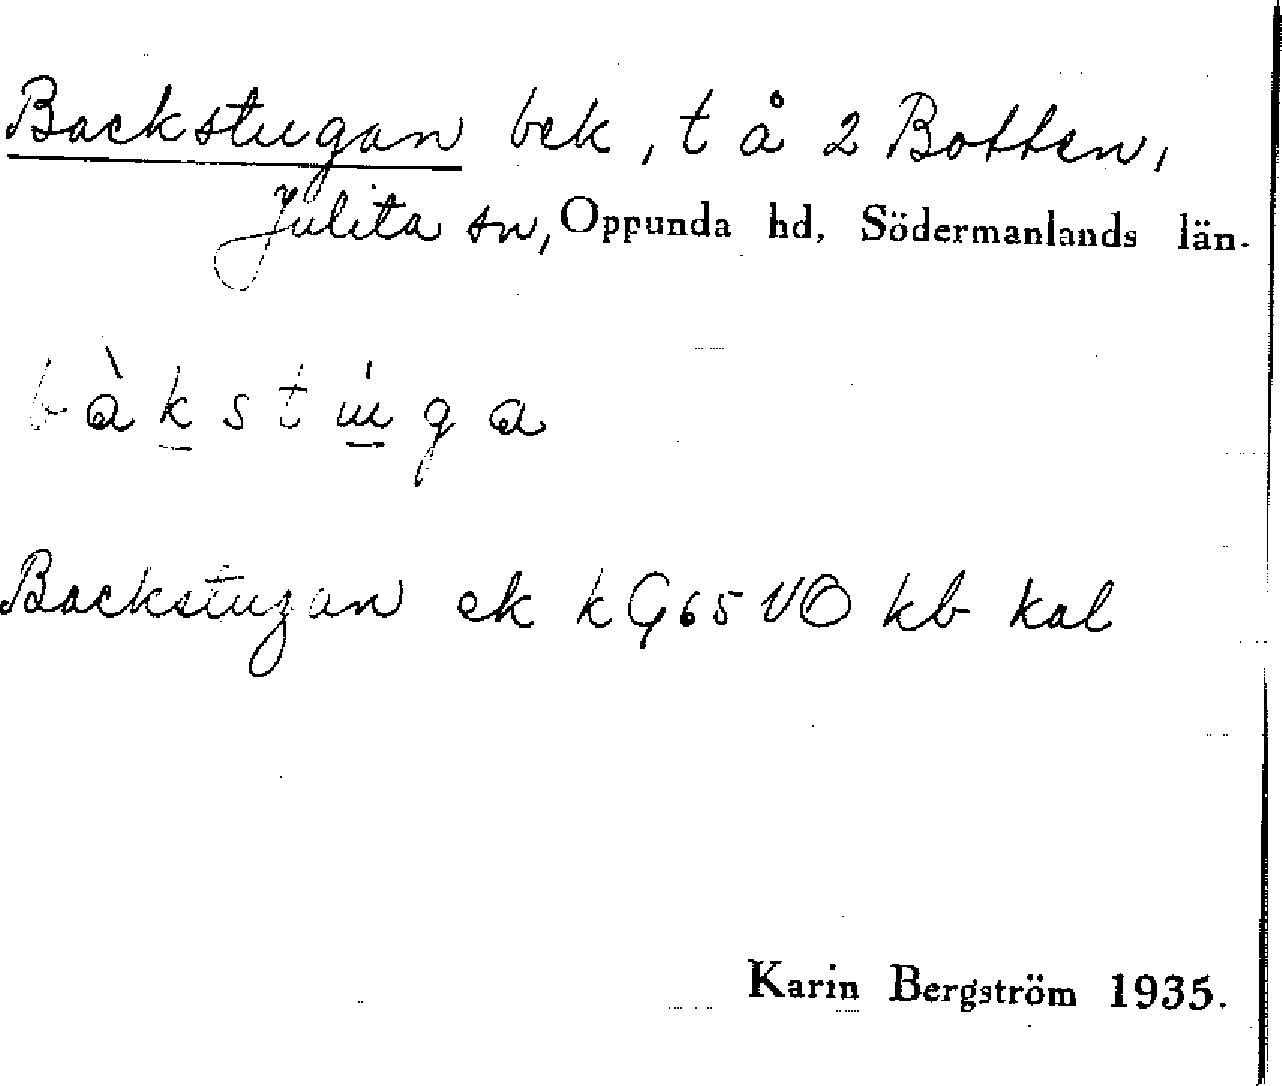 Backstugan bek, t å 2 Botten,
Julita sn, Oppunda hd, Södermanlands län.
bàkstu̍ga
Backstugan ek k G65 VO kb kal
Karin Bergström 1935.